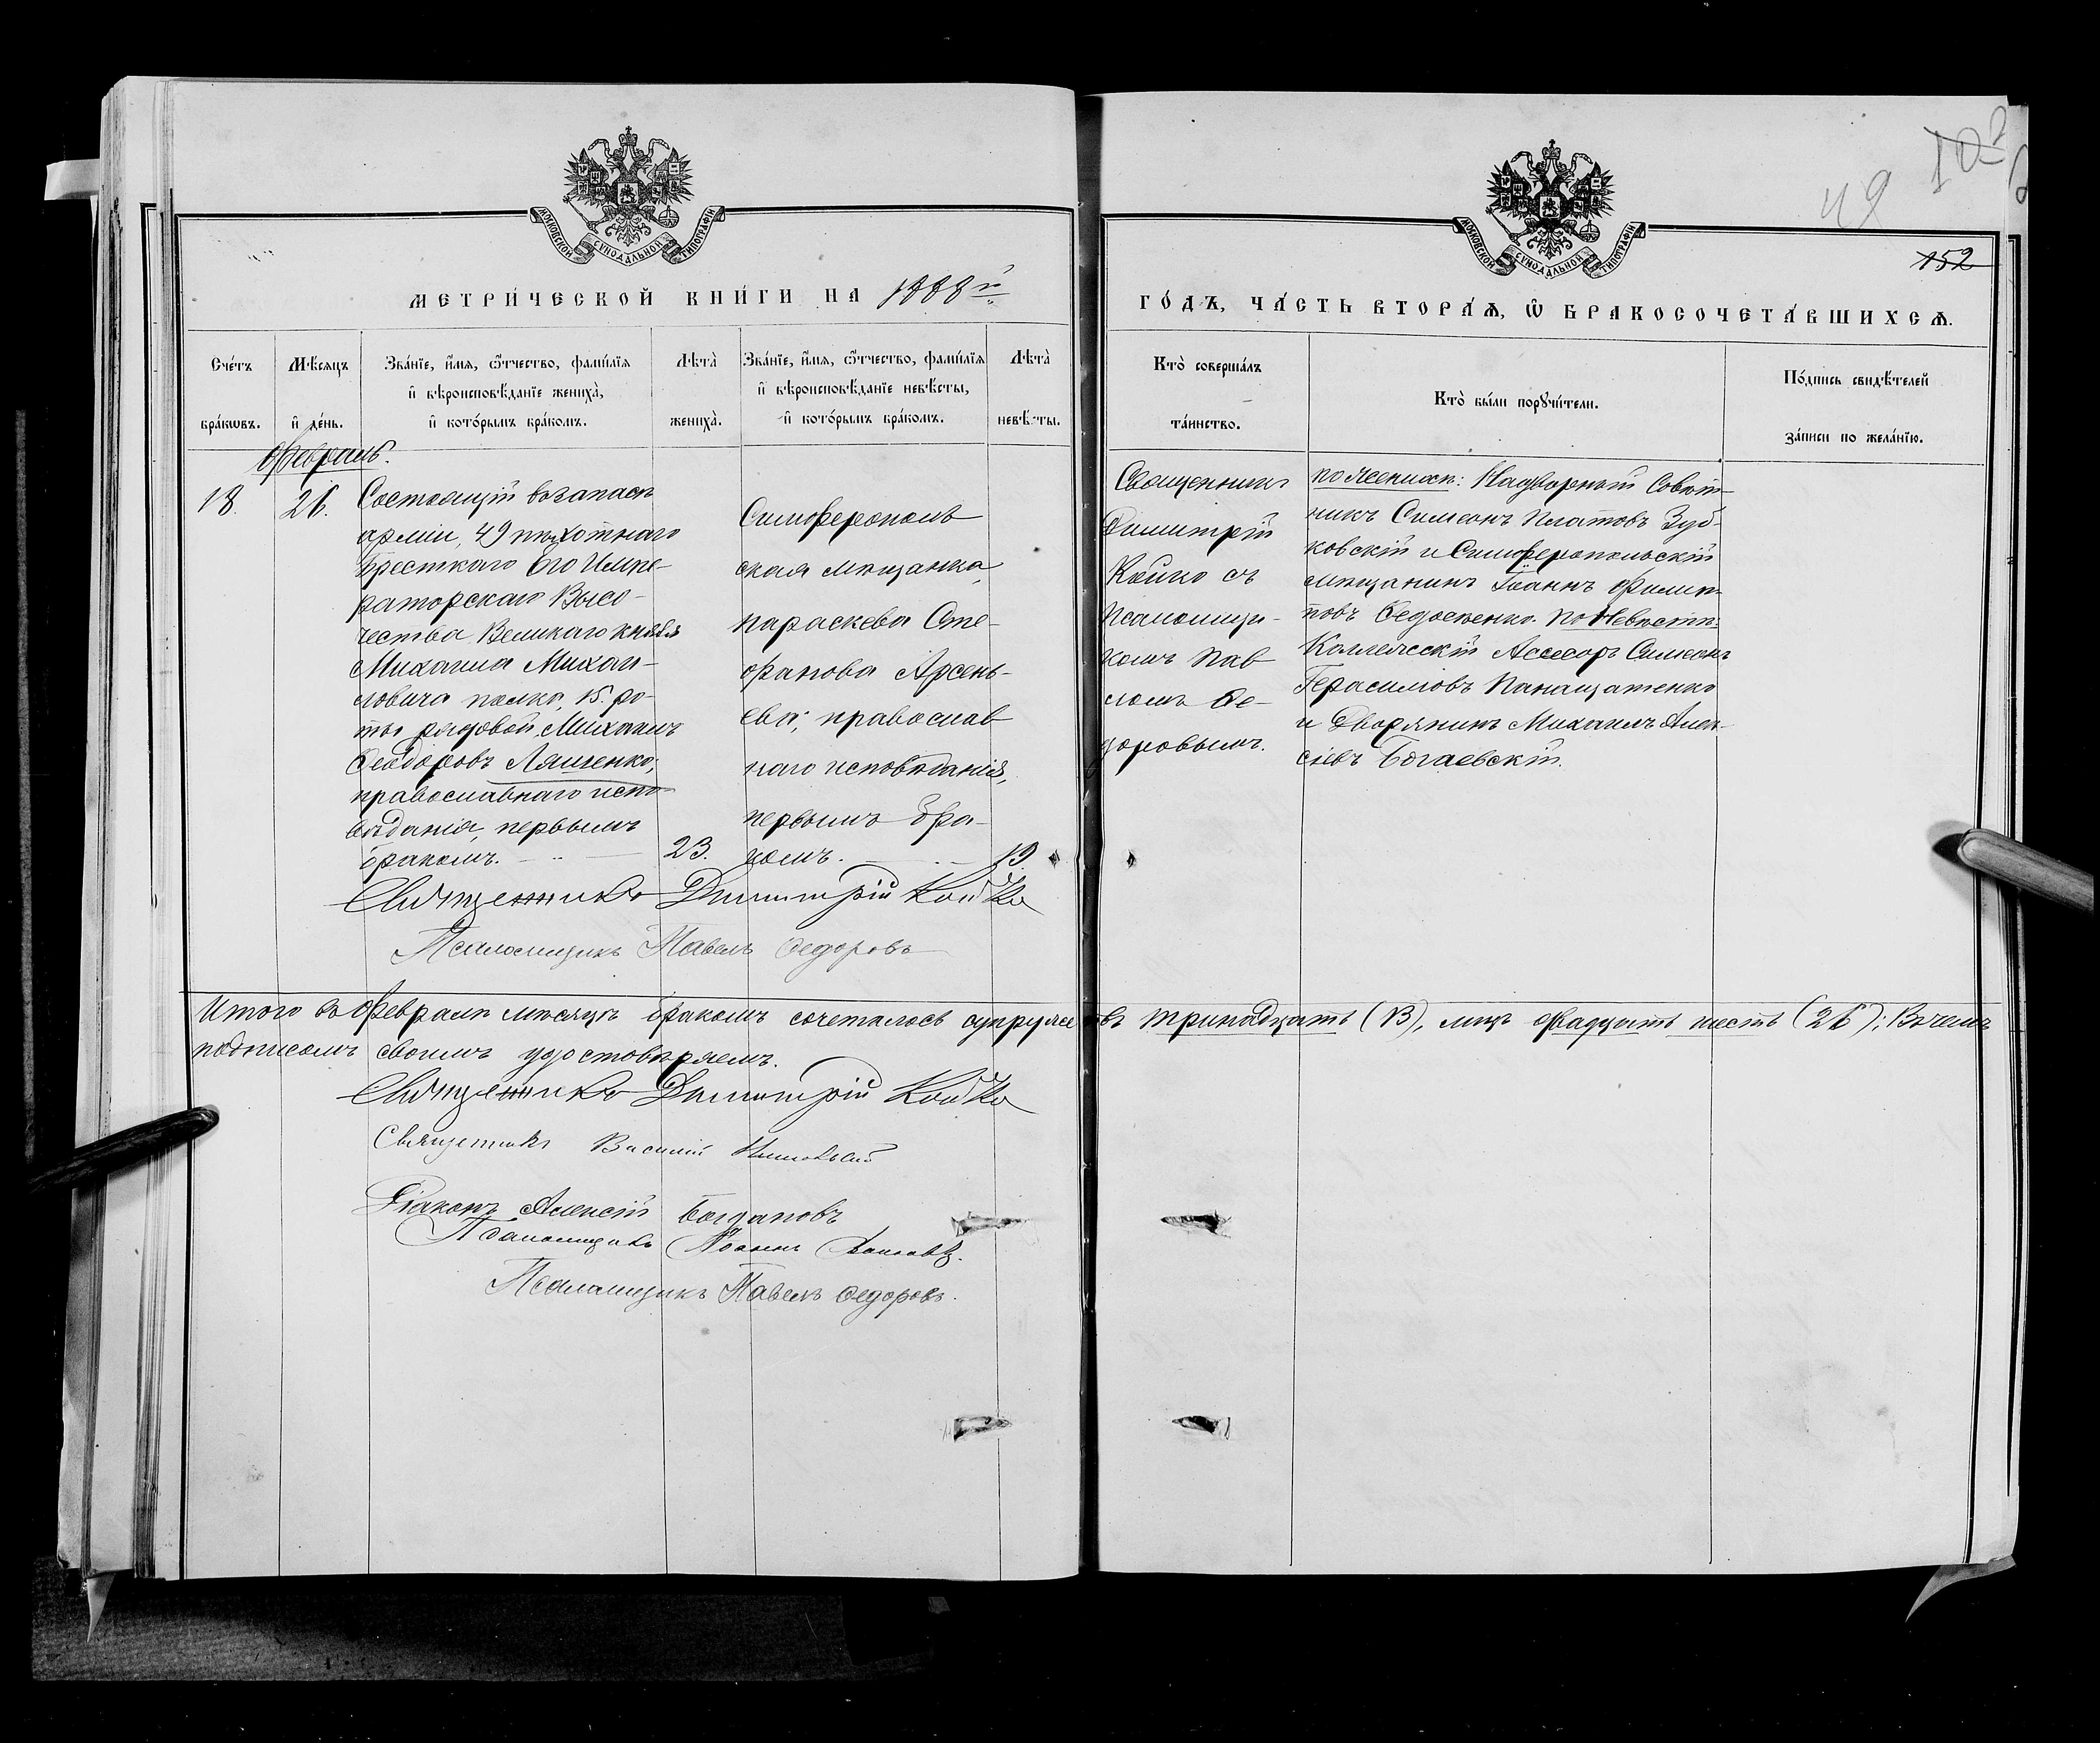 МОСКОВСКОЙ СѴНОДАЛЬНОЙ ТИПОГРАФІИ
МЕТРИ́ЧЕСКОЙ КНИ́ГИ НА 1888й
Сче́тъ бра́кѡвъ.
Мѣ́сяцъ и҆ де́нь.
Зва́нїе, и҆́мѧ, ѻ҆́тчество, фами́лїѧ
и҆ вѣроисповѣ́данїе жениха̀,
и҆ кото́рымъ бра́комъ.
Лѣта̀ жениха̀.
Зва́нїе, и҆́мѧ, ѻ҆́тчество, фами́лїѧ
и҆ вѣроисповѣ́данїе невѣ́сты,
и҆ кото́рымъ бра́комъ.
Лѣта̀ невѣ́сты.
Февраль.
18.
26.
Состоящій въ запасѣ
арміи, 49 пѣхотнаго
Брестскаго Его Импе-
раторскаго Высо-
чества Великаго Князя
Михаила Михаи-
ловича полка, 15. ро-
ты рядовой, Михаилъ
Ѳеодоровъ Ляшенко;
православнаго испо-
вѣданія, первымъ
бракомъ.
23.
Симферополь-
ская мѣщанка
Параскева Сте-
фанова Арсень-
ева; православ-
наго исповѣданія,
первымъ бра-
комъ.
19.
Священникъ Димитрій Койко
Псаломщикъ Павелъ Ѳедоровъ
Итого въ Февралѣ мѣсяцѣ бракомъ сочеталось супружествъ тринадцать (13), лицъ двадцать шесть (26); Въ чемъ
подписомъ своимъ удостовѣряемъ.
Священникъ Димитрій Койко
Священникъ Василій
Діаконъ Алексій Богдановъ
Псаломщикъ Іоаннъ
Псаломщикъ Павелъ Ѳедоровъ.
49
152
МОСКОВСКОЙ СѴНОДАЛЬНОЙ ТИПОГРАФІИ
ГО́ДЪ, ЧА́СТЬ ВТОРА́Ѧ, Ѡ҆ БРАКОСОЧЕТА́ВШИХСѦ.
Кто̀ соверша́лъ
та́инство.
Кто̀ бы́ли порꙋчи́тели.
По́дпись свидѣ́телей
за́писи по жела́нїю.
Священникъ
Димитрій
Койко съ
Псаломщи-
комъ Пав-
ломъ Ѳе-
доровымъ.
по женихѣ: Надворный Совѣт-
никъ Симеонъ Платовъ Зуб-
ковскій и Симферопольскій
мѣщанинъ Іоаннъ Филип-
повъ Ѳедосѣенко. По невѣстѣ:
Коллежскій Асессоръ Симеонъ
Герасимовъ Панащатенко
и Дворянинъ Михаилъ Алек-
сіевъ Богаевскій.